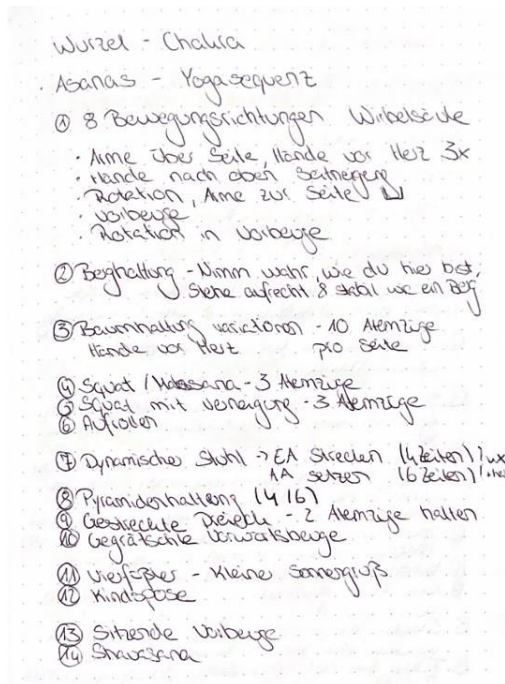 Wurzel - Chakra
Asanas - Yogasequenz
① 8 Bewegungsrichtungen Wirbelsäule
· Arme über Seite, Hände vor Herz 3x
· Hände nach oben Seitneigung
· Rotation, Arme zur Seite
· Vorbeuge
· Rotation in Vorbeuge
② Berghaltung - Nimm wahr, wie du hier bist,
Stehe aufrecht & stabil wie ein Berg
③ Baumhaltung variationen - 10 Atemzüge
Hände vor Herz pro Seite
④ Squat / Malasana - 3 Atemzüge
⑤ Squat mit Verneigung - 3 Atemzüge
⑥ Aufrollen
⑦ Dynamischer Stuhl -> EA Strecken (4 Zeiten)
AA setzen (6 Zeiten)
⑧ Pyramidenhaltung (4/6)
⑨ Gestreckte Dreieck - 2 Atemzüge halten
⑩ Gegrätschte Vorwärtsbeuge
⑪ Vierfüßler - Kleiner Sonnengruß
⑫ Kindspose
⑬ Sitzende Vorbeuge
⑭ Shavasana